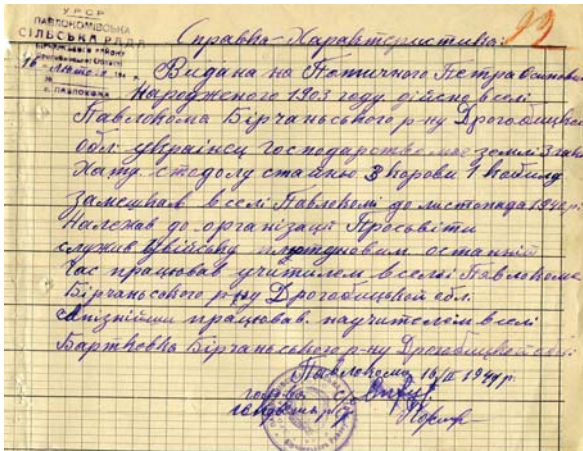 УРСР
ПАВЛОКОМІВСЬКА
СІЛЬСЬКА РАДА
Справка-Характеристика:
92
16 Лютого 194 р.
№
с. ПАВЛОКОМА
Видана на Потічного Петра
Народженого 1903 году. дійсно в селі
Павлокома Бірчанського р-ну Дрогобицької
обл. українец господарство має землі 3 гавк
Хату. стодолу стайню 3 корови 1 кобилу
замешкав в селі Павлокомі до листопада 1940 р.
Належав до організації Просьвіти
служив у війську плютуновим. останній
час працював учителем в селі Павлокома
Бірчанського р-ну Дрогобицької обл.
пізнійше працював научителем в селі
Бартковка Бірчанського р-ну Дрогобицької обл.
Павлокома 16/II 1941 р.
голова с/р